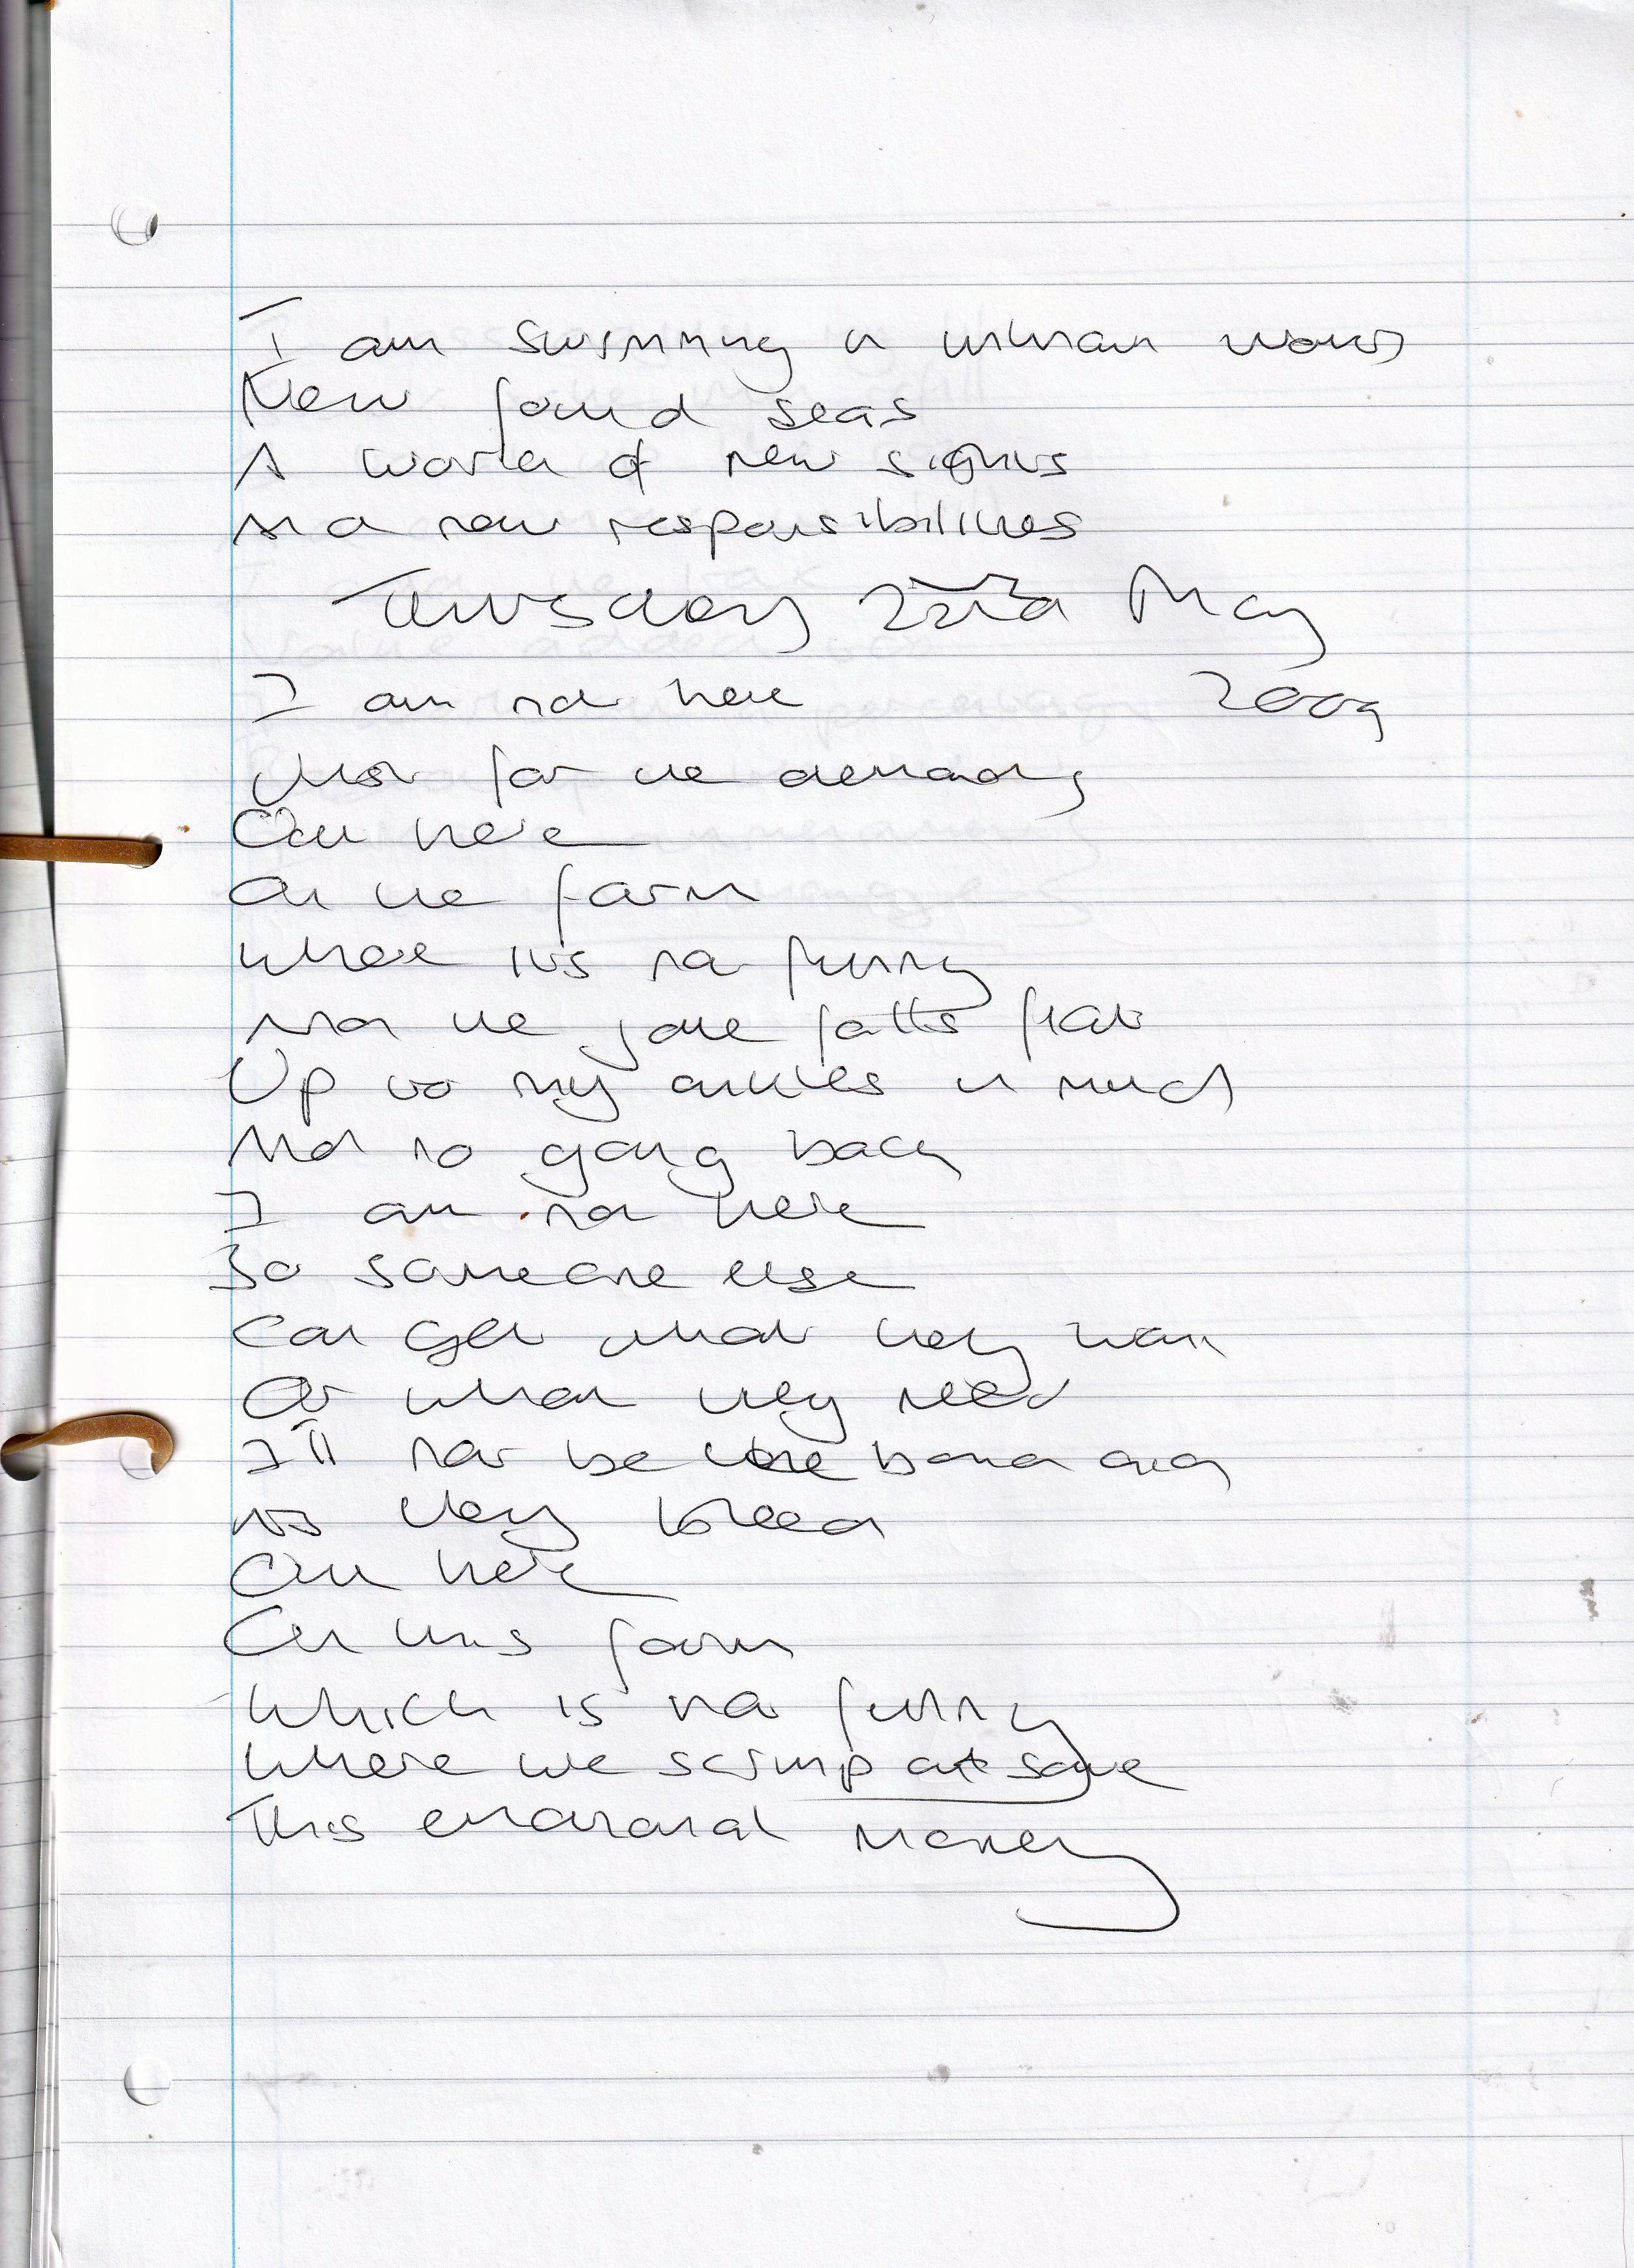 I am swimming in waters
New found seas
A world of new sights
And new responsibilities
Thursday 22nd May
2009
I am not here
Just for the
Out here
On the farm
Where its not funny
And the joke falls flat
Up to my ankles in mud
And no going back
I am not here
So someone else
Can get what they want
Or what they need
I'll not be
As they bleed
Out here
On this farm
Which is not funny
Where we scrimp and save
This money